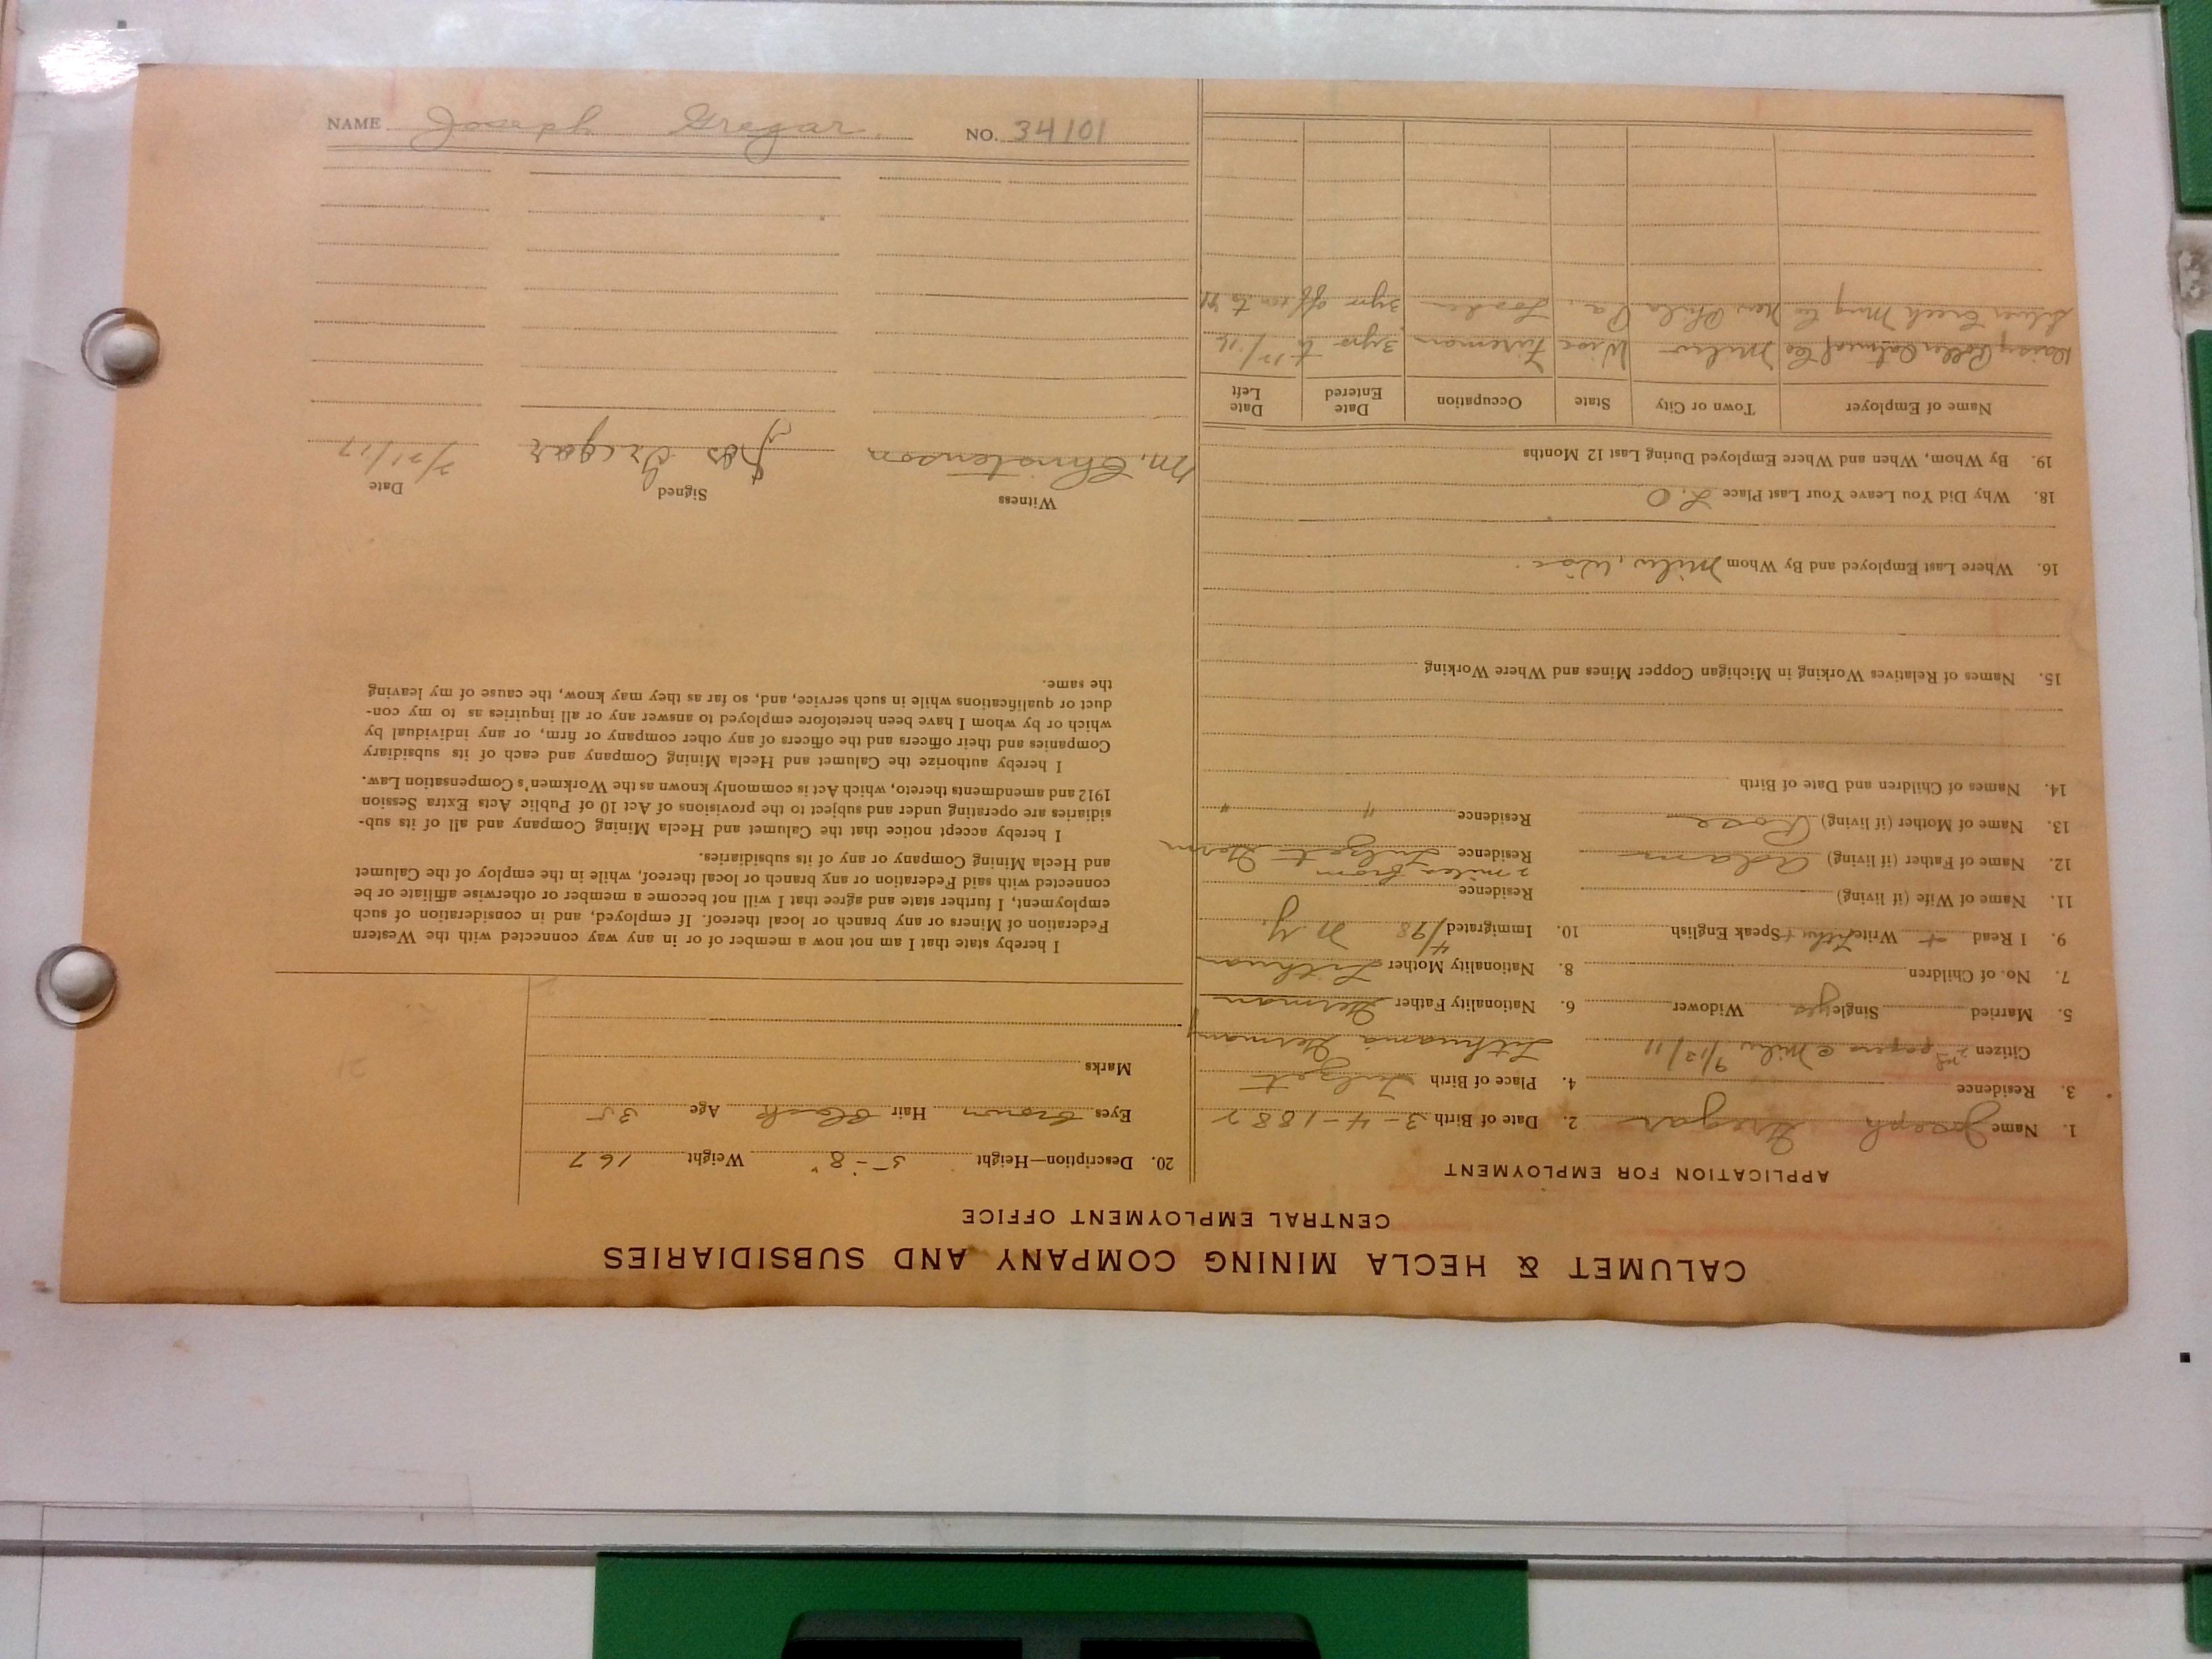 NAME Joseph Gregar. NO. 34101
CALUMET & HECLA MINING COMPANY AND SUBSIDIARIES
CENTRAL EMPLOYMENT OFFICE
APPLICATION FOR EMPLOYMENT
1. Name Joseph Gregar 2. Date of Birth 3-4-1882
3. Residence 4. Place of Birth
Citizen 2nd papers @ Milw 9/13/11 Lithuania Germany
5. Married Single yes Widower 6. Nationality Father German
7. No. of Children 8. Nationality Mother Lithuan
9. I Read + Write Lithu + Speak English 10. Immigrated 4/98 N.Y.
11. Name of Wife (if living) Residence
2 miles from
12. Name of Father (if living) Adam Residence Germ
13. Name of Mother (if living) Rose Residence " "
14. Names of Children and Date of Birth
15. Names of Relatives Working in Michigan Copper Mines and Where Working
16. Where Last Employed and By Whom Milw, Wisc.
18. Why Did You Leave Your Last Place L.O
19. By Whom, When and Where Employed During Last 12 Months
Name of Employer Town or City State Occupation Date Entered Date Left
Daisy Roller Co Milw Wisc Fireman 3 yrs to
Silver Creek Mung Co New Phila Pa. Loader 3 yrs off & on to 11
20. Description—Height 5-8" Weight 167
Eyes brown Hair Black Age 35
Marks
I hereby state that I am not now a member of or in any way connected with the Western
Federation of Miners or any branch or local thereof. If employed, and in consideration of such
employment, I further state and agree that I will not become a member or otherwise affiliate or be
connected with said Federation or any branch or local thereof, while in the employ of the Calumet
and Hecla Mining Company or any of its subsidiaries.
I hereby accept notice that the Calumet and Hecla Mining Company and all of its sub-
sidiaries are operating under and subject to the provisions of Act 10 of Public Acts Extra Session
1912 and amendments thereto, which Act is commonly known as the Workmen's Compensation Law.
I hereby authorize the Calumet and Hecla Mining Company and each of its subsidiary
Companies and their officers and the officers of any other company or firm, or any individual by
which or by whom I have been heretofore employed to answer any or all inquiries as to my con-
duct or qualifications while in such service, and, so far as they may know, the cause of my leaving
the same.
Witness Signed Date
M. Christenson Jos Gregar 2/21/17